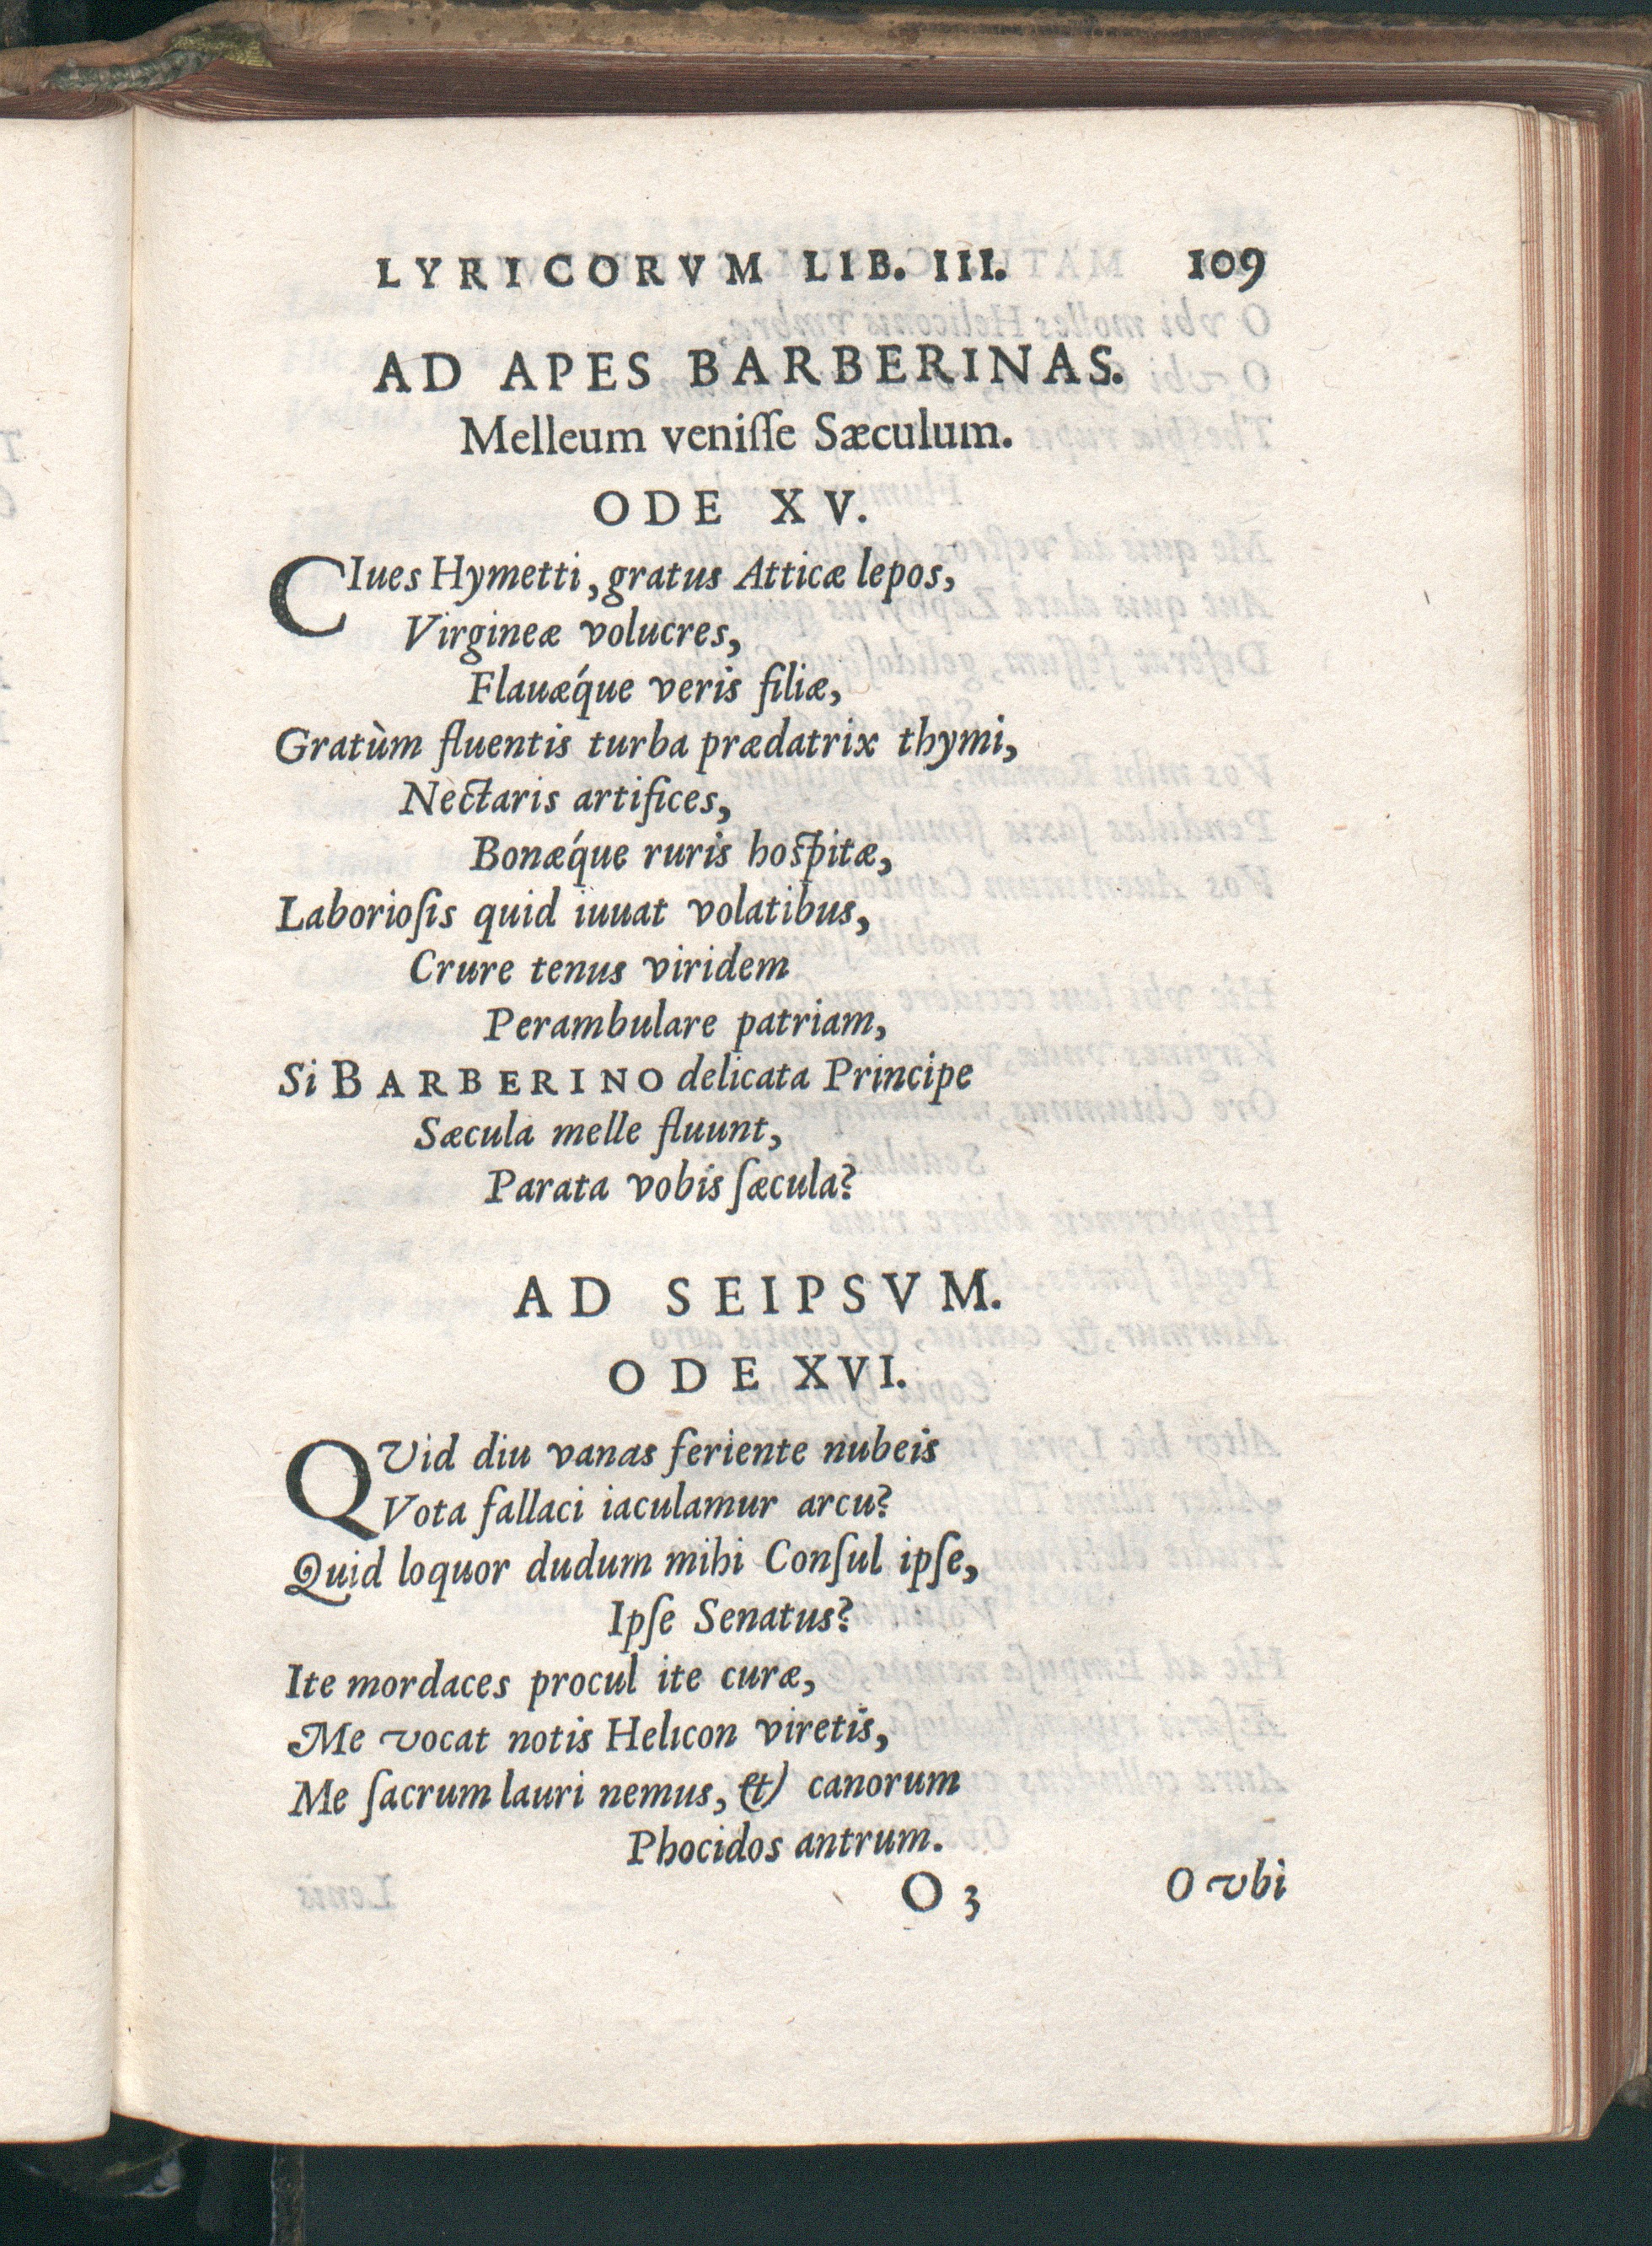 LYRICORVM LIB. III. 109
AD APES BARBERINAS.
Melleum veniſſe Sæculum.
ODE XV.
CIues Hymetti, gratus Atticæ lepos,
Virgineæ volucres,
Flauæq́ue veris filiæ,
Gratùm fluentis turba prædatrix thymi,
Nectaris artifices,
Bonæq́ue ruris hoſpitæ,
Laborioſis quid iuuat volatibus,
Crure tenus viridem
Perambulare patriam,
Si BARBERINO delicata Principe
Sæcula melle fluunt,
Parata vobis ſæcula?
AD SEIPSVM.
ODE XVI.
QVid diu vanas feriente nubeis
Vota fallaci iaculamur arcu?
Quid loquor dudum mihi Conſul ipſe,
Ipſe Senatus?
Ite mordaces procul ite curæ,
Me vocat notis Helicon viretis,
Me ſacrum lauri nemus, & canorum
Phocidos antrum.
O 3 O vbi